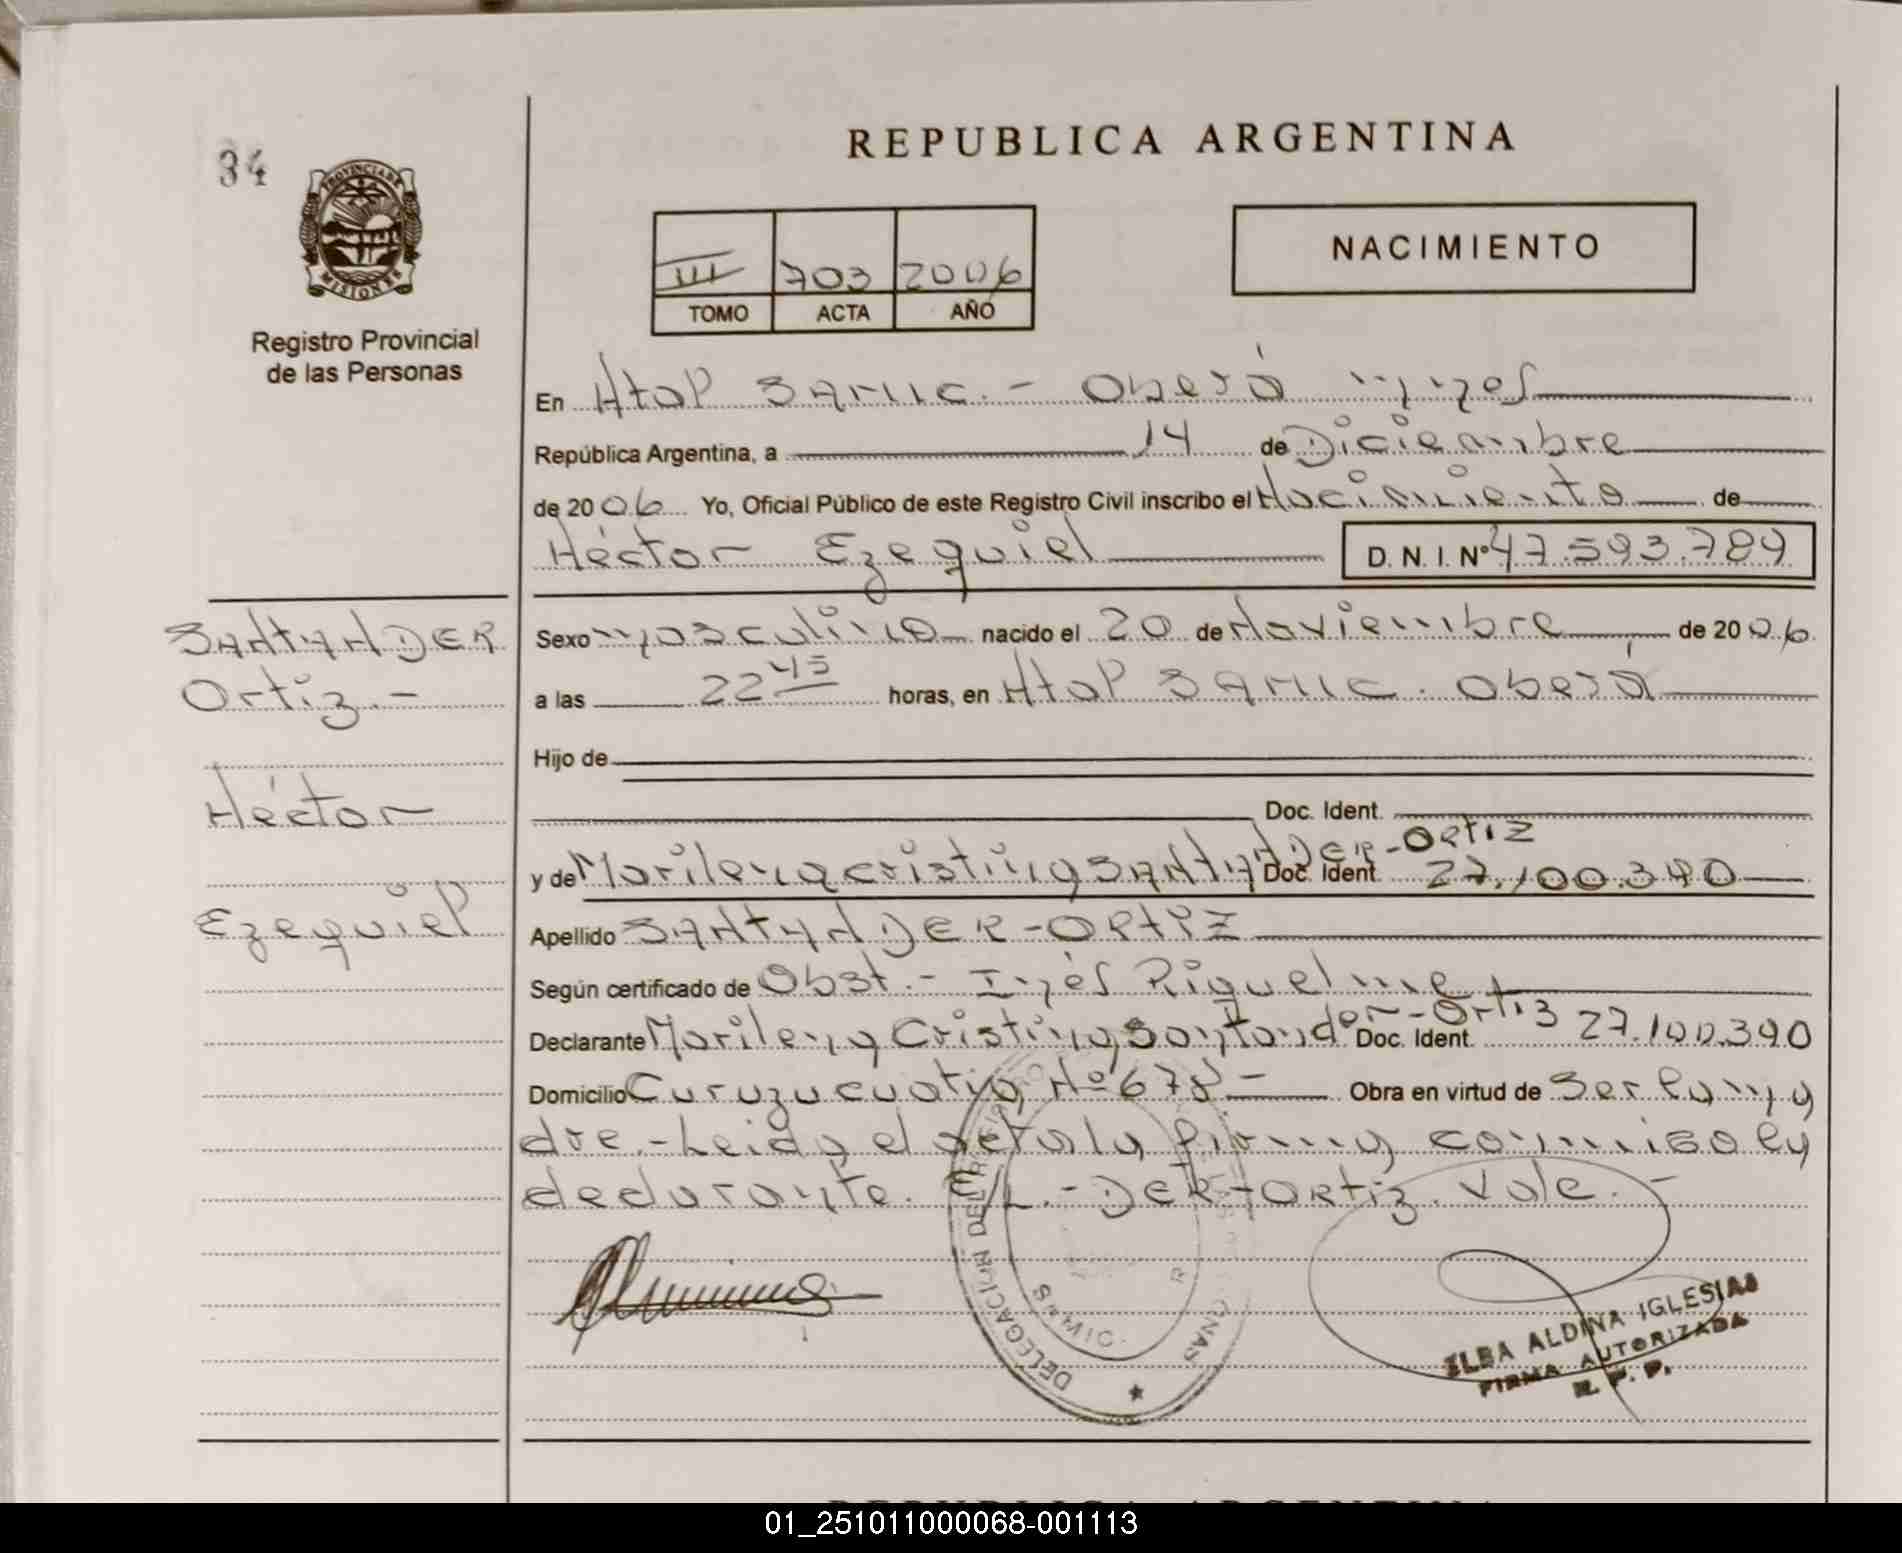 34
PROVINCIA DE
MISIONES
Registro Provincial
de las Personas
REPUBLICA ARGENTINA
III 703 2006
TOMO ACTA AÑO
NACIMIENTO
En Htal SAMIC. - Oberá Mnes
República Argentina, a 14 de Diciembre
de 2006 Yo, Oficial Público de este Registro Civil inscribo el Nacimiento de
Héctor Ezequiel D. N. I. Nº 47.593.789
SANTANDER
Ortiz. -
Héctor
Ezequiel
Sexo masculino nacido el 20 de Noviembre de 2006
a las 22 45 horas, en Htal SAMIC. Oberá
Hijo de
Doc. Ident.
y de Marilena Cristina SANTANDER-Ortiz Doc. Ident 27.100.390
Apellido SANTANDER-ORTIZ
Según certificado de Obst. - Inés Riquelme
Declarante Marilena Cristina Santander-Ortiz Doc. Ident. 27.100.390
Domicilio Curuzu cuatia Nº 678 - Obra en virtud de Ser la ma
dre. - Leida el acta la firma conmigo la
declarante. E/L. - DER-Ortiz. Vale. -
DELEGACION DEL REG
CIVIL
ELBA ALDINA IGLESIAS
FIRMA AUTORIZADA
R. P. P.
REPUBLICA ARGENTINA
01_251011000068-001113